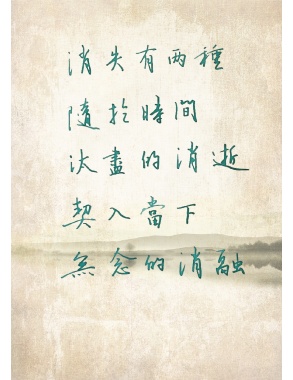 消失有两種
隨於時間
汰盡的消逝
契入當下
無念的消融